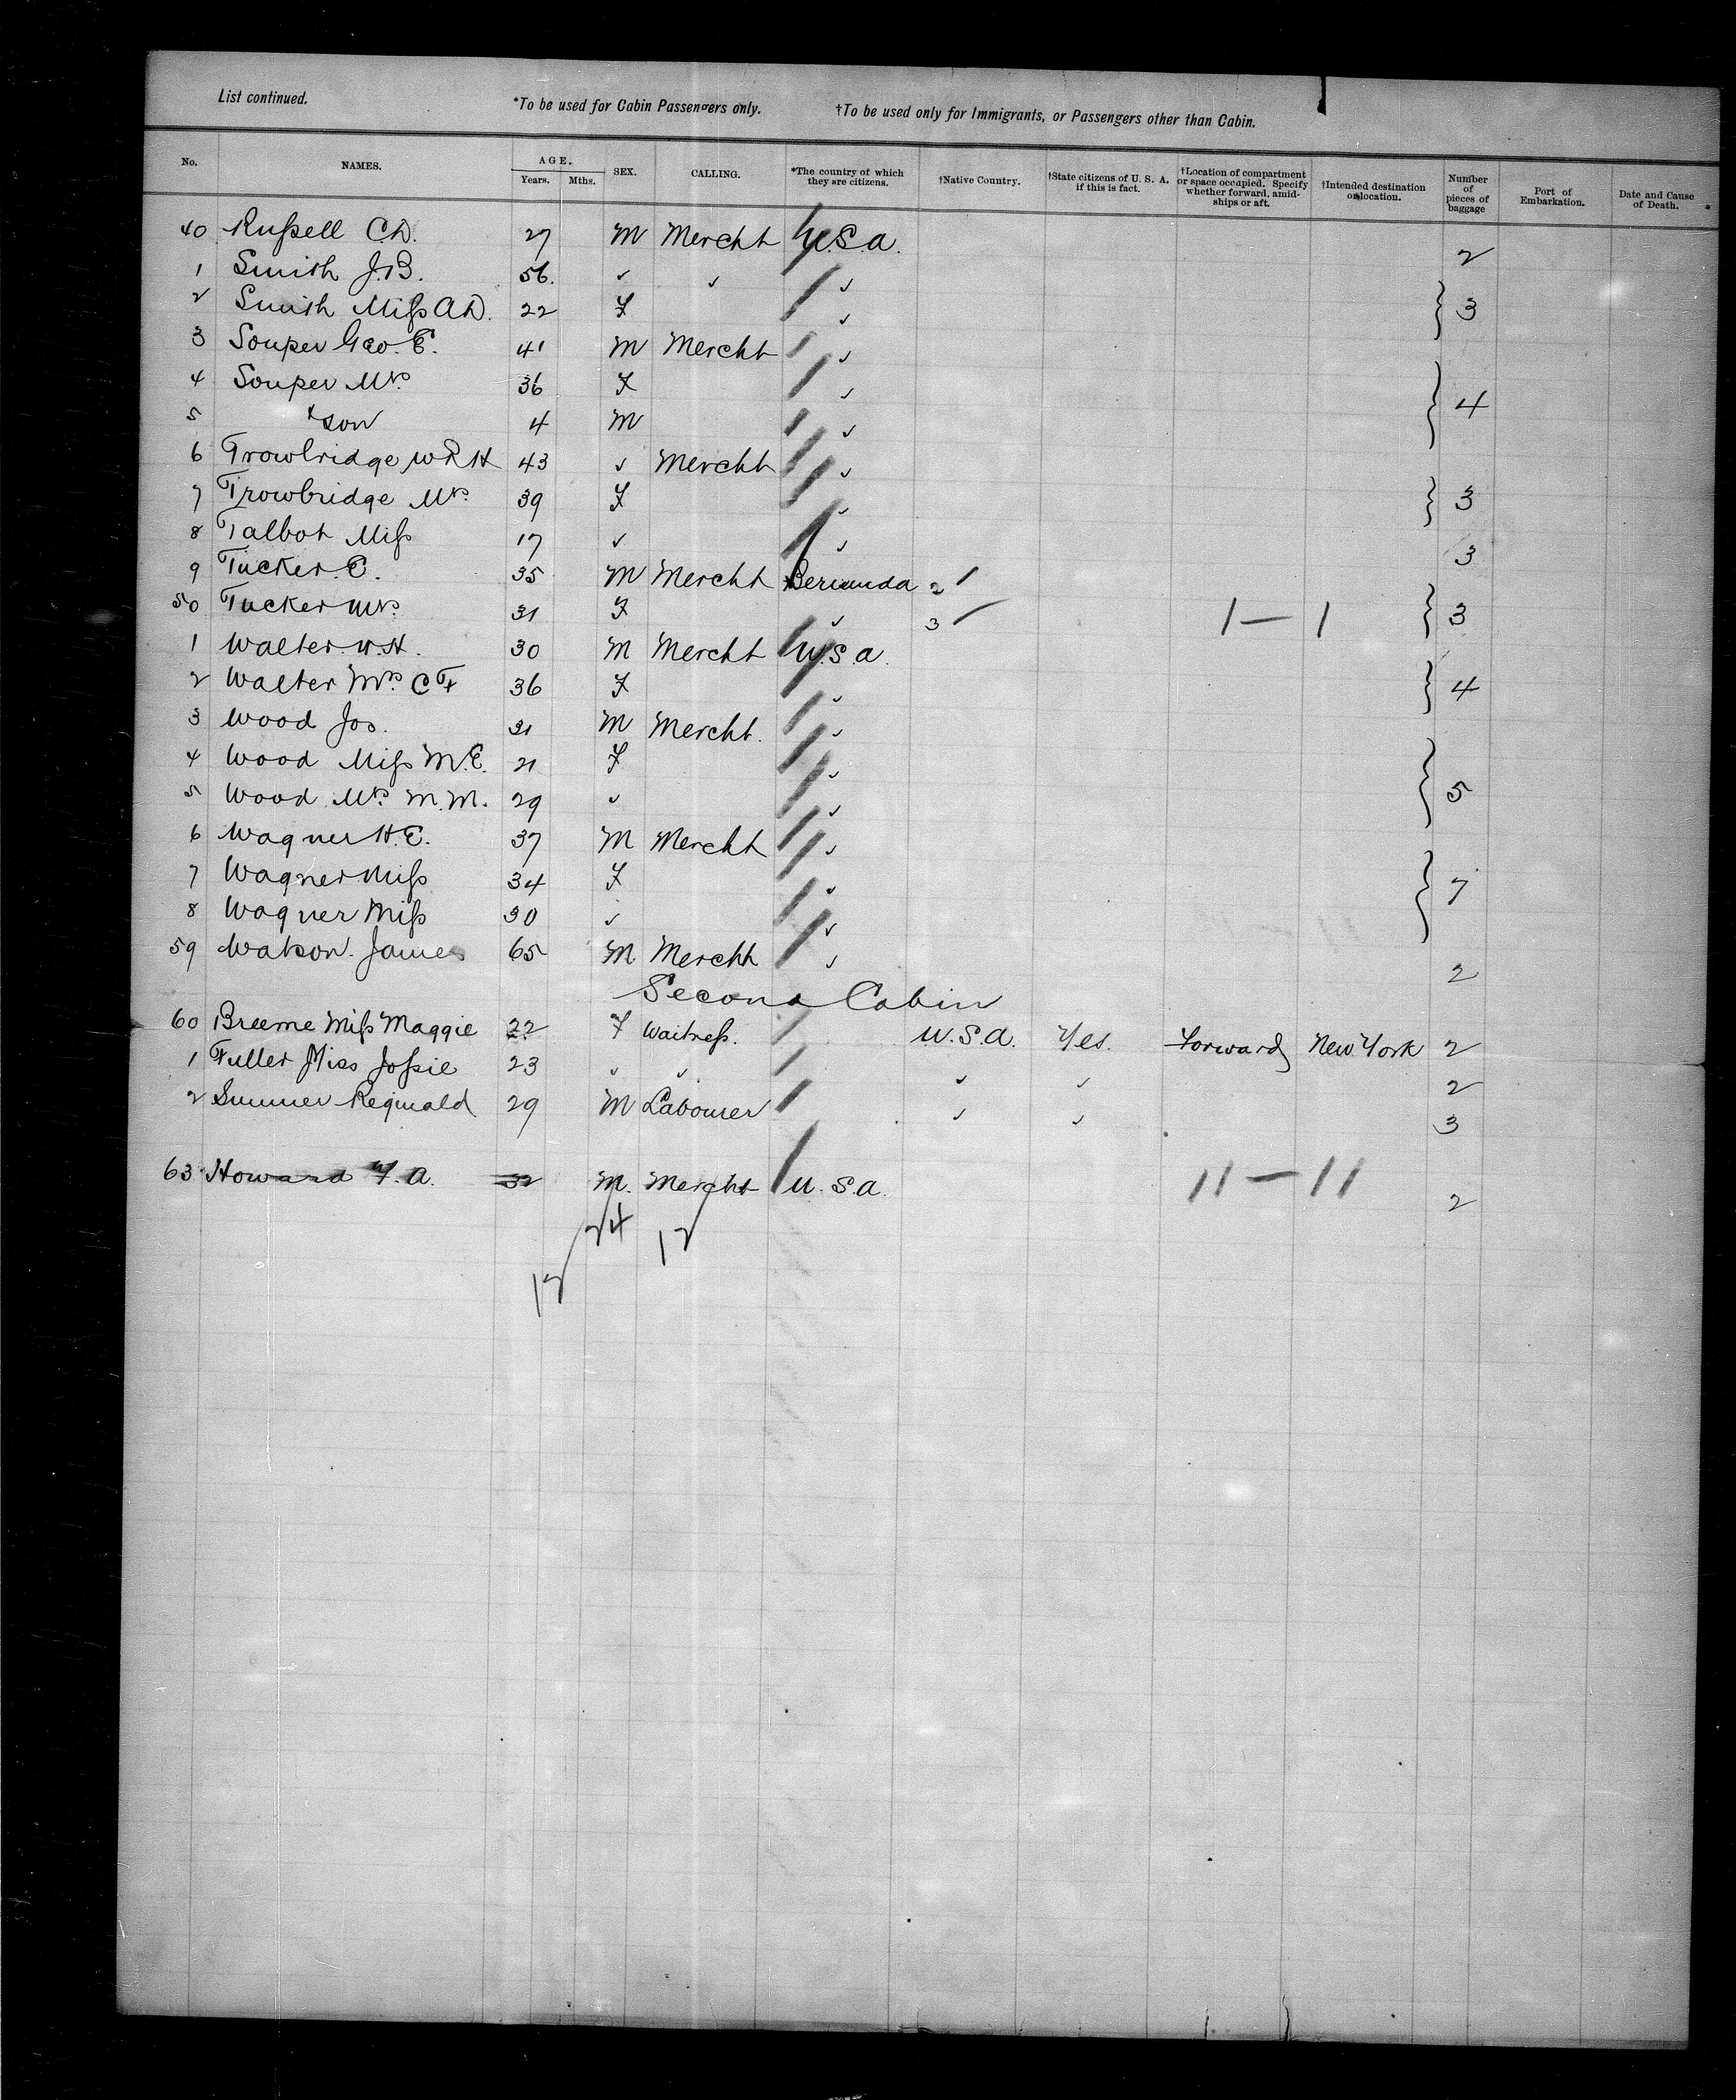 List continued. *To be used for Cabin Passengers only. †To be used only for Immigrants, or Passengers other than Cabin.
No. NAMES. AGE. Years. Mths. SEX. CALLING. *The country of which they are citizens. †Native Country. †State citizens of U. S. A. if this is fact. †Location of compartment or space occupied. Specify whether forward, amidships or aft. †Intended destination or location. Number of pieces of baggage Port of Embarkation. Date and Cause of Death.
40 Russell C.D. 27 M Mercht U.S.A. 2
1 Smith J.B. 56 ✓ ✓ ✓
2 Smith Miss A.D. 22 F ✓ } 3
3 Souper Geo. E. 41 M Mercht ✓
4 Souper Mrs 36 F ✓ } 4
5 & son 4 M ✓
6 Trowbridge W R H 43 ✓ Mercht ✓
7 Trowbridge Mrs 39 F ✓ } 3
8 Talbot Miss 17 ✓ ✓ 3
9 Tucker E. 35 M Mercht Bermuda 2
50 Tucker Mrs 31 F ✓ 3 1 — 1 } 3
1 Walter W.H. 30 M Mercht U.S.A.
2 Walter Mrs C F 36 F ✓ } 4
3 Wood Jos. 31 M Mercht. ✓
4 Wood Miss M.E. 21 F ✓
5 Wood Mrs M.M. 29 ✓ ✓ } 5
6 Wagner H.E. 37 M Mercht ✓
7 Wagner Miss 34 F ✓ } 7
8 Wagner Miss 30 ✓ ✓
59 Watson James 65 M Mercht ✓ 2
Second Cabin
60 Breeme Miss Maggie 22 F Waitress. U.S.A. Yes. Forward New York 2
1 Fuller Miss Jossie 23 ✓ ✓ ✓ ✓ 2
2 Summer Reginald 29 M Labourer ✓ ✓ 3
63 Howard F. A. 32 M. Mercht U.S.A. 11 — 11 2
24 12
12